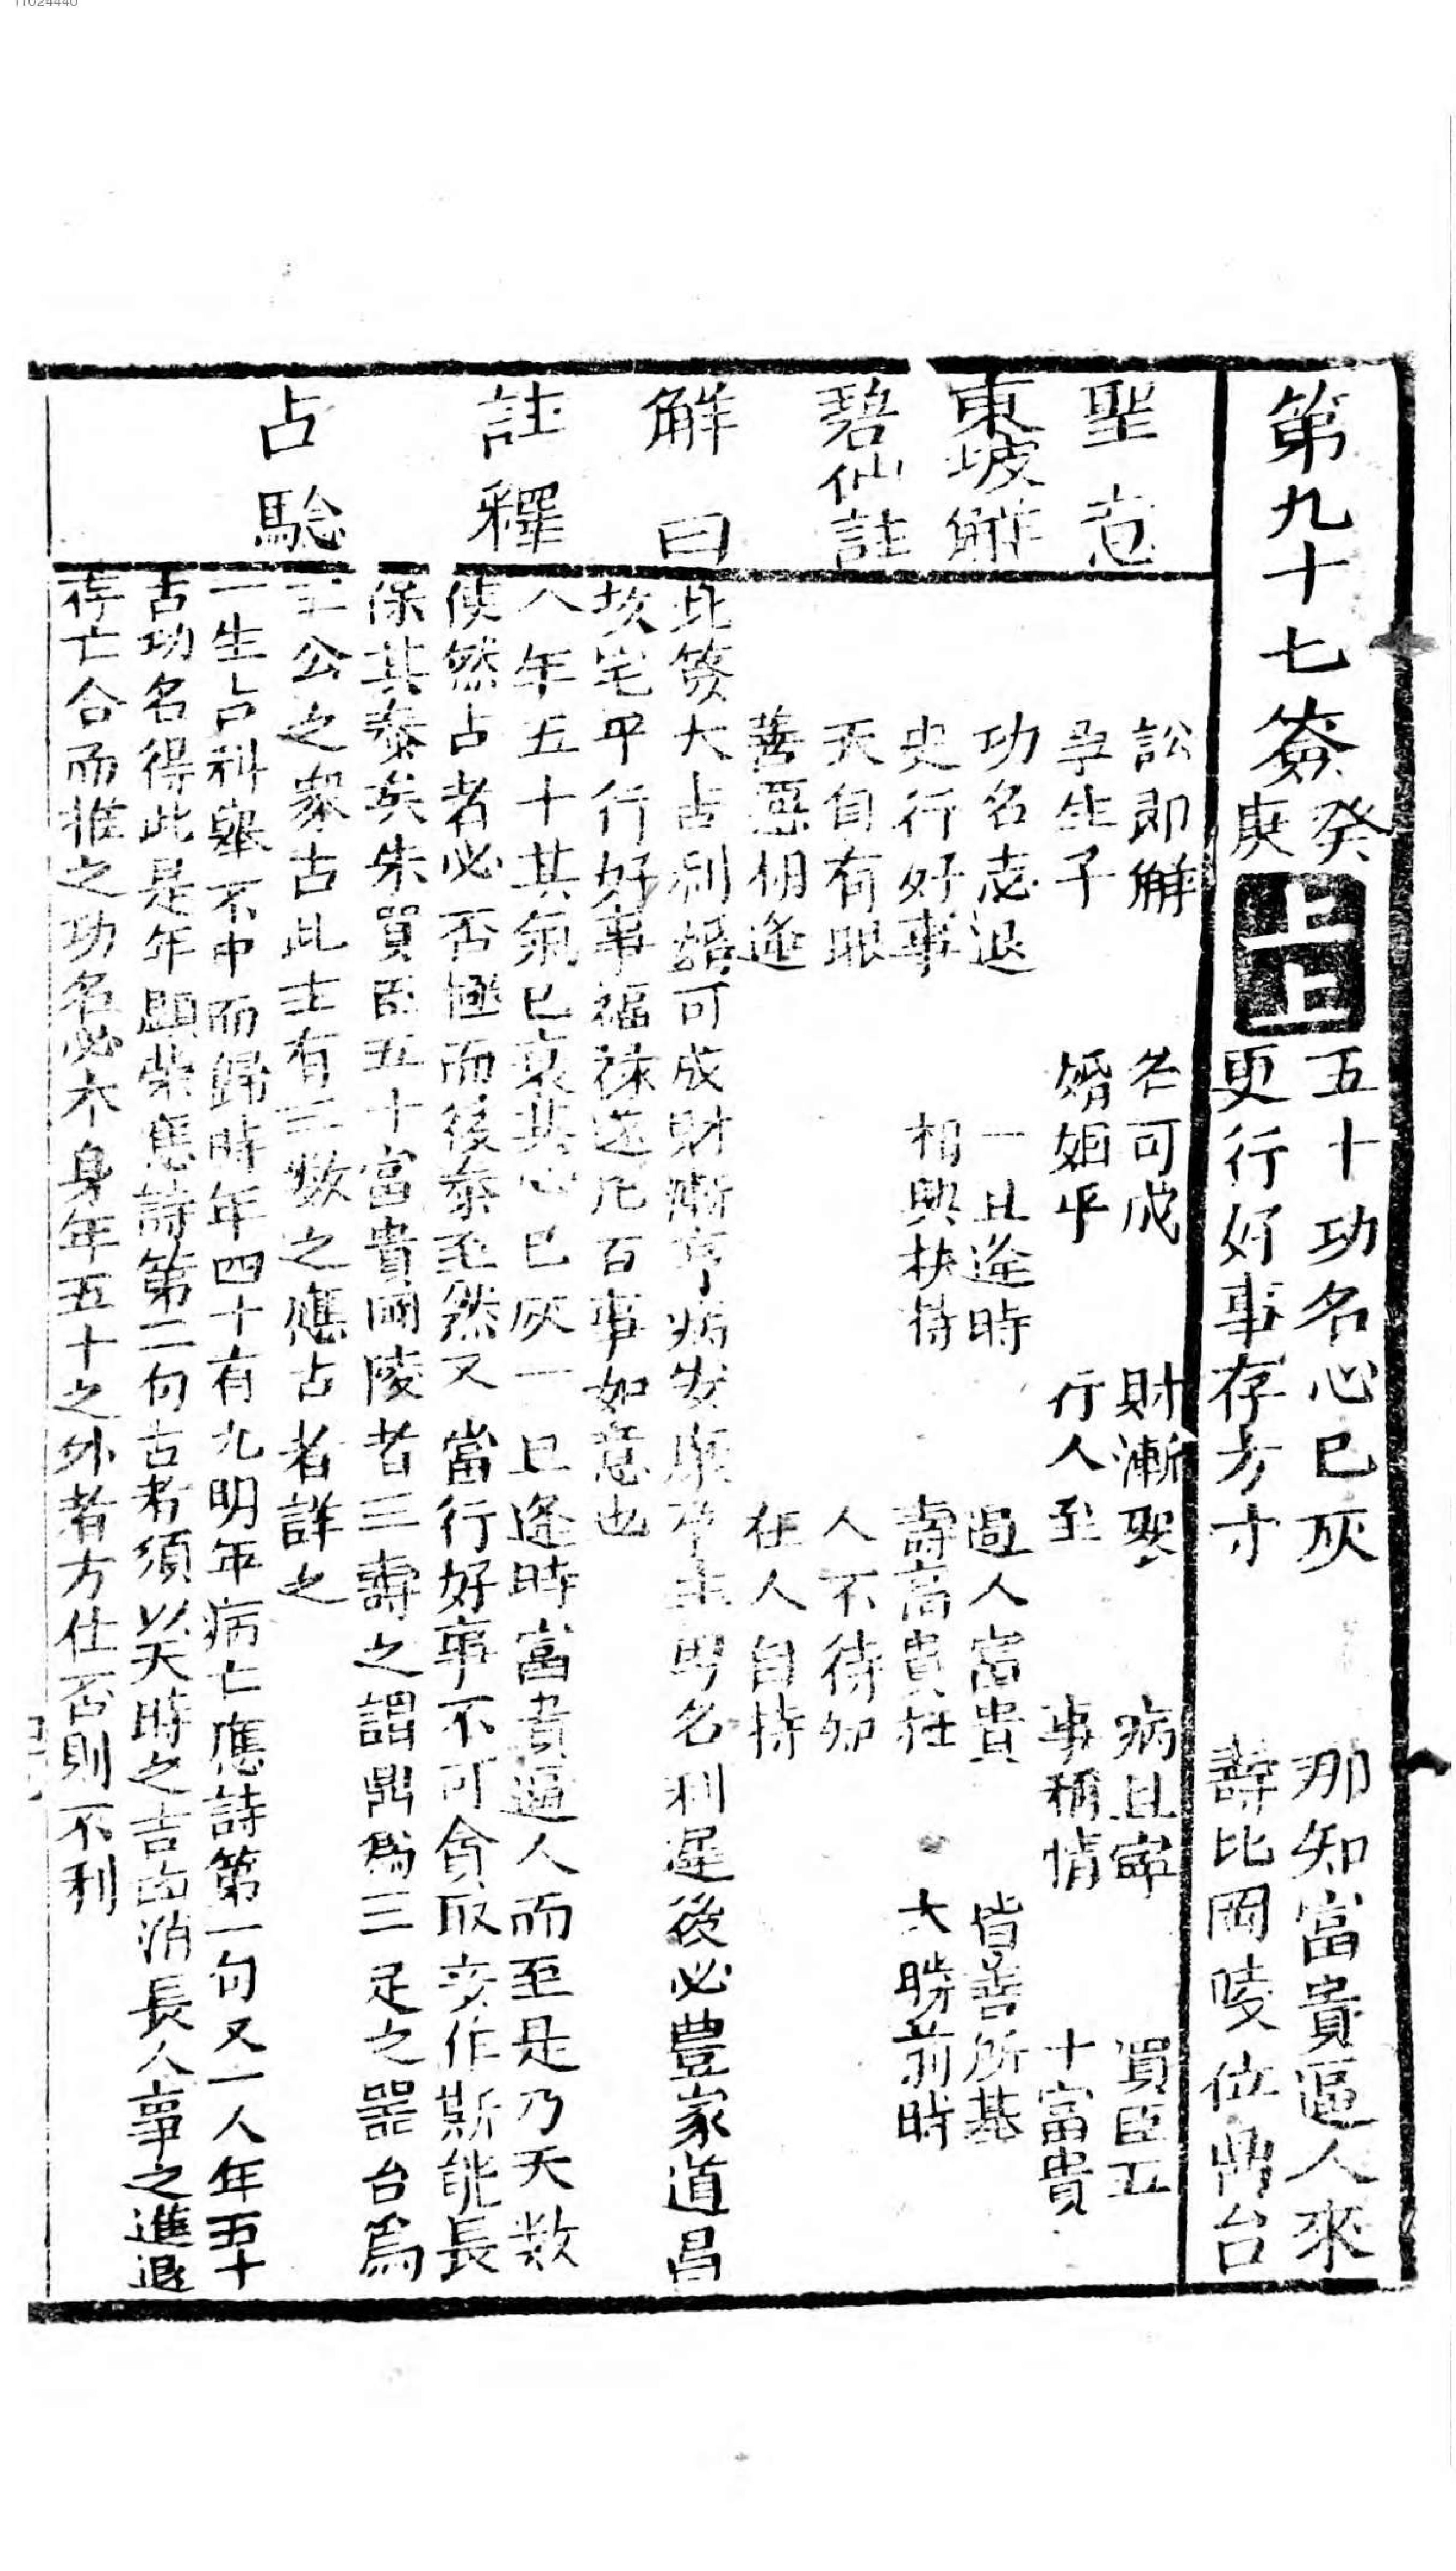 11024440
第九十七簽
癸庚
上上
五十功名心已灰　那知富貴逼人來
更行好事存方寸　壽比岡陵位鼎台
聖意
訟即解　名可成　財漸聚　病且寧　買臣五
孕生子　婚姻平　行人至　事稱情　十富貴
東坡解
功名志退　一旦逢時　逼人富貴　皆善所基
更行好事　相與扶持　壽高貴在　大勝前時
碧仙註
天自有眼　人不待知
善惡相逢　在人自持
解曰
此簽大占利婚可成財漸亨病安康孕生男名利遲後必豐家道昌
坟宅平行好事福祿還凡百事如意也
註釋
人年五十其氣已衰其心已灰一旦逢時富貴逼人而至是乃天数
使然占者必否極而後泰至然又當行好事不可貪取妄作斯能長
保其泰矣朱買臣五十富貴岡陵者三壽之謂鼎為三足之器台為
三公之象古此士有三数之應占者詳之
占騐
一生占科舉不中而歸時年四十有九明年病亡應詩第一句又一人年五十
占功名得此是年顯榮應詩第二句古者須以天時之吉凶消長人事之進退
存亡合而推之功名必本身年五十之外者方仕否則不利